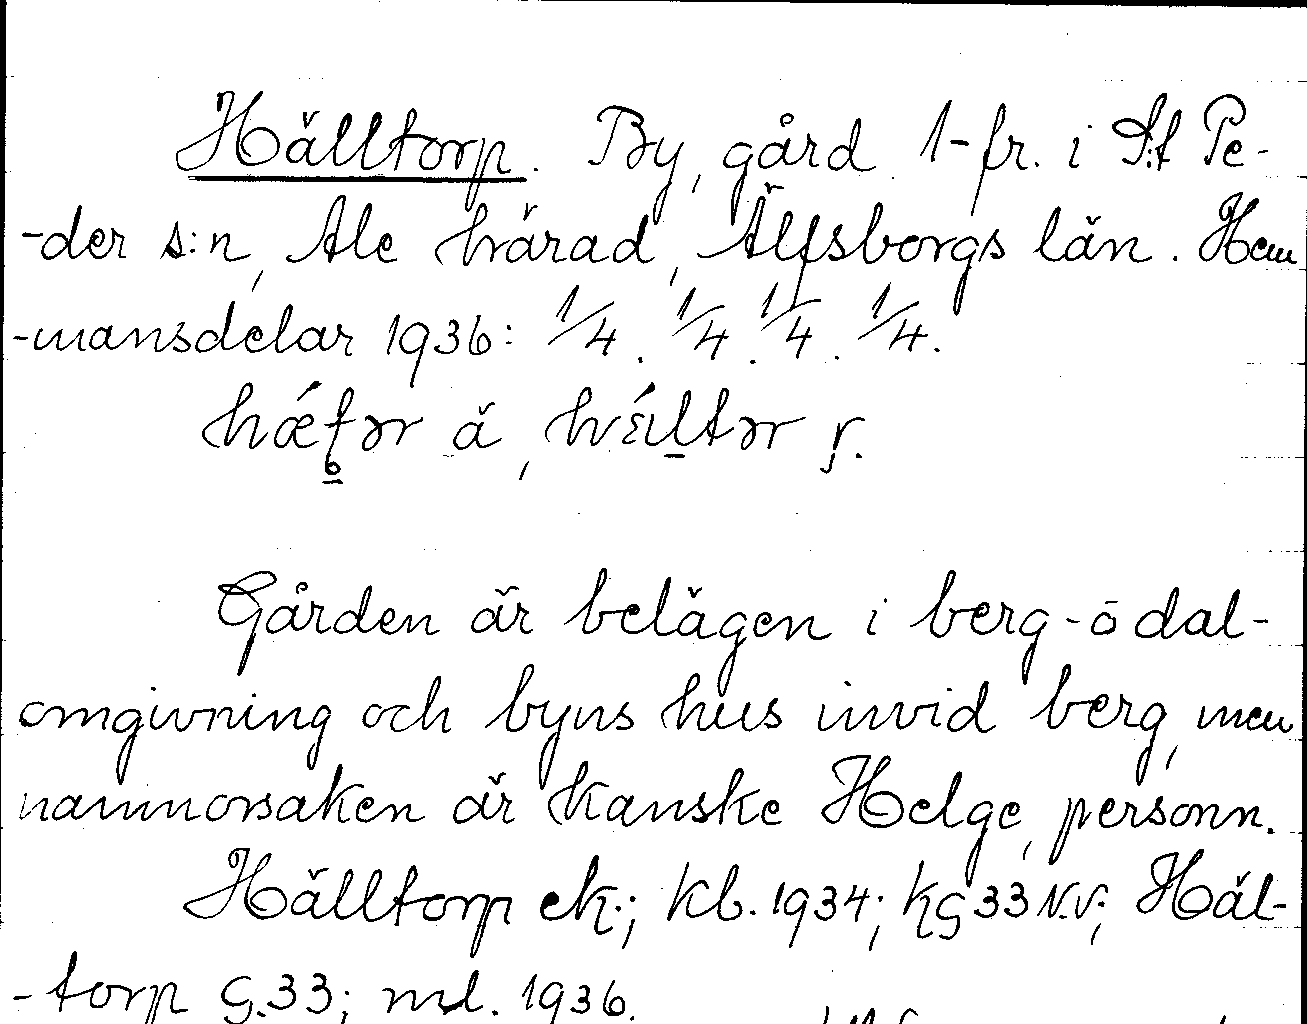 Hälltorp. By, gård 1-fr. i S:t Pe-
-der s:n, Ale härad, Älfsborgs län. Hem
-mansdelar 1936: 1/4. 1/4. 1/4. 1/4.
ä,
Gården är belägen i berg- o dal-
omgivning och byns hus invid berg, men
namnorsaken är kanske Helge, personn.
Hälltorp ek.; kb. 1934; kG33 N.V.; Häl-
-torp G.33; ml. 1936.